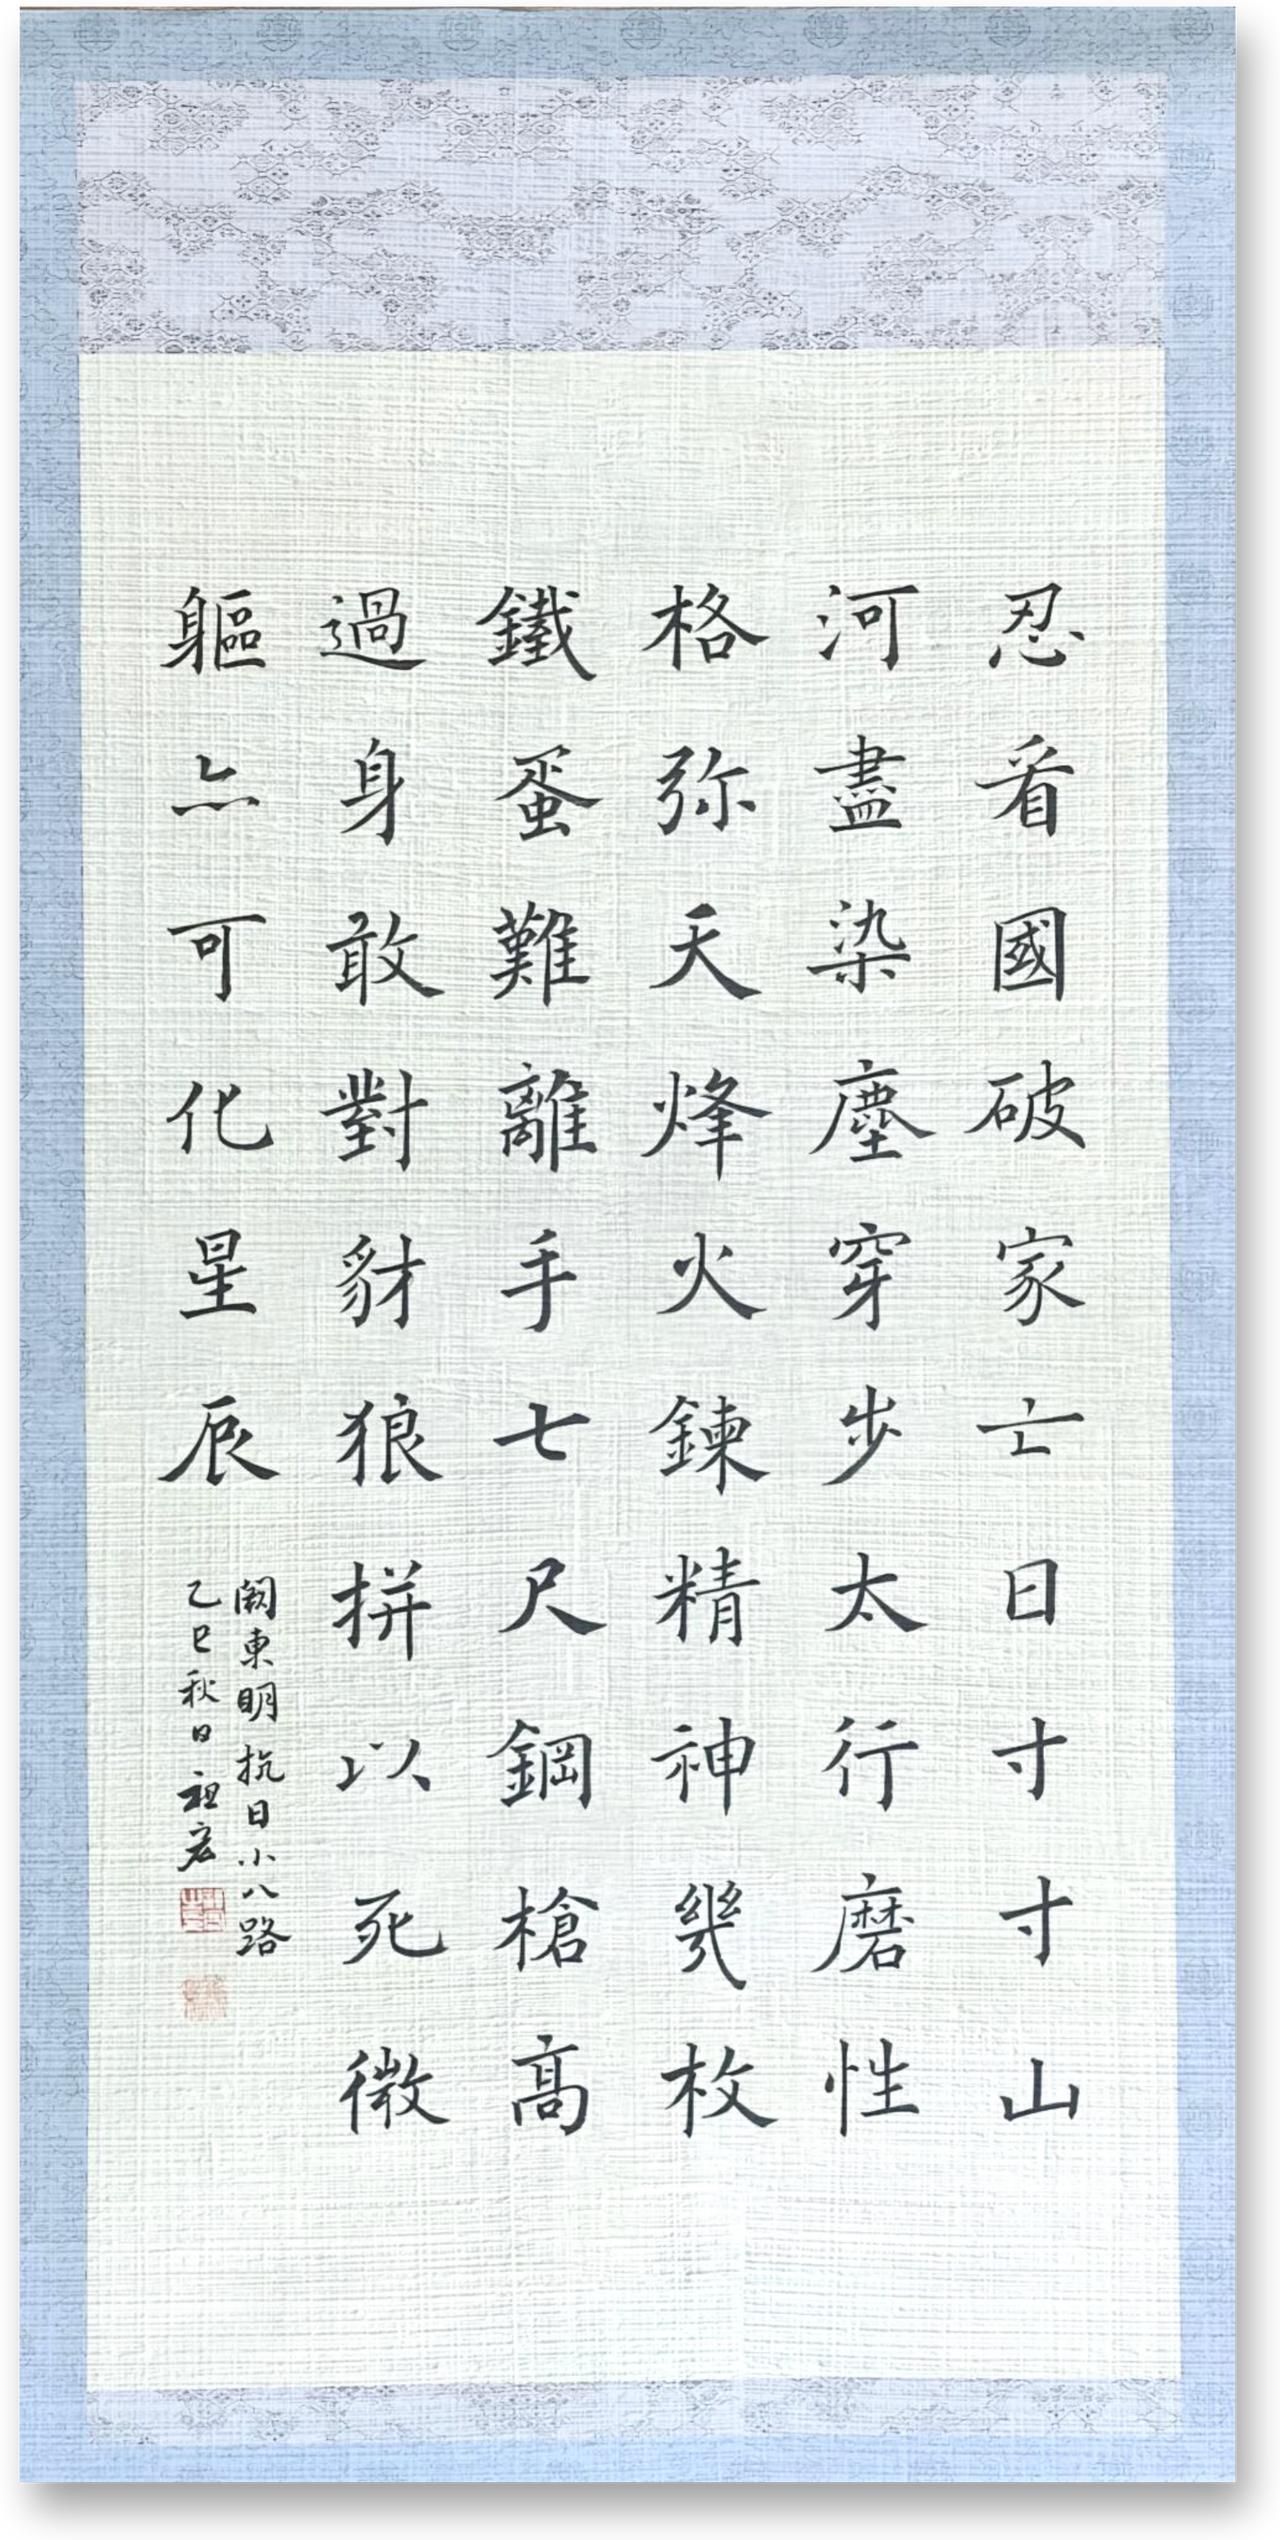 忍看國破家亡日寸寸山
河盡染塵穿步太行磨性
格弥天烽火鍊精神幾枚
鐵蛋難離手七尺鋼槍高
過身敢對豺狼拼以死微
軀亦可化星辰
闕東明抗日小八路
乙巳秋日祖宏